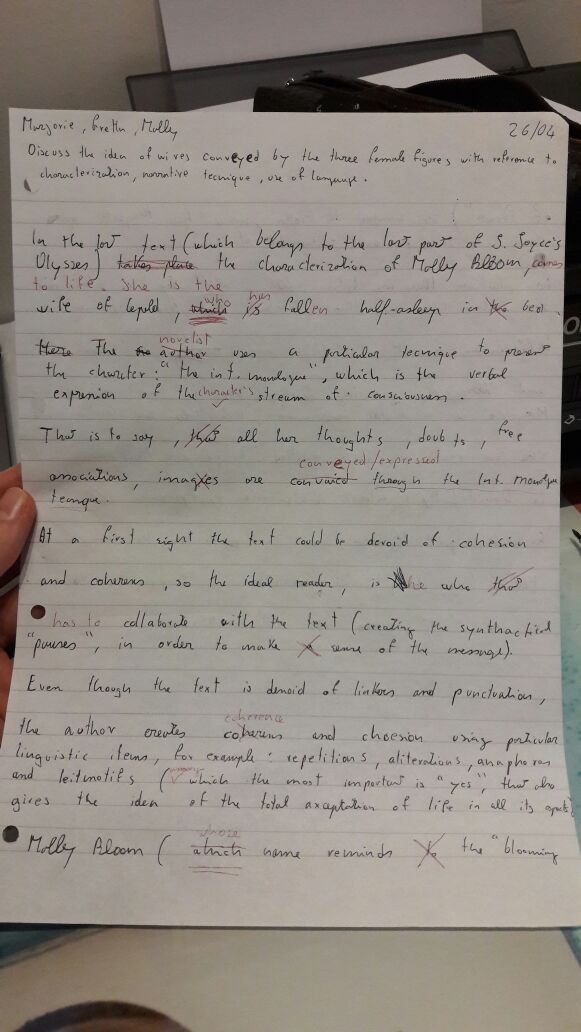 Marjorie, Gretta, Molly 26/04
Discuss the idea of wives conveyed by the three female figures with reference to
characterization, narrative tecnique, use of language.
In the last text (which belongs to the last part of J. Joyce's
Ulysses) takes place the characterization of Molly Bloom, comes
to life. She is the
wife of Lepold, which who is has fallen half-asleep in the bed.
There The the author novelist uses a particular tecnique to present
the character: "the int. monologue", which is the verbal
expression of the character's stream of consciousness.
That is to say, that all her thoughts, doubts, free
conveyed/expressed
associations, images are convaied through the Int. monologue
tecnique.
At a first sight the text could be devoid of cohesion
and coherens, so the ideal reader, is he who that
has to collaborate with the text (creating the synthactical
"pauses", in order to make a sense of the message).
Even though the text is devoid of linkers and punctuation,
coherence
the author creates coherens and choesion using particular
linguistic items, for example: repetitions, aliterations, anaphoras
and leitmotifs (among which the most important is "yes", that also
gives the idea of the total axaptation of life in all its aspects)
whose
Molly Bloom (which name reminds to the "blooming